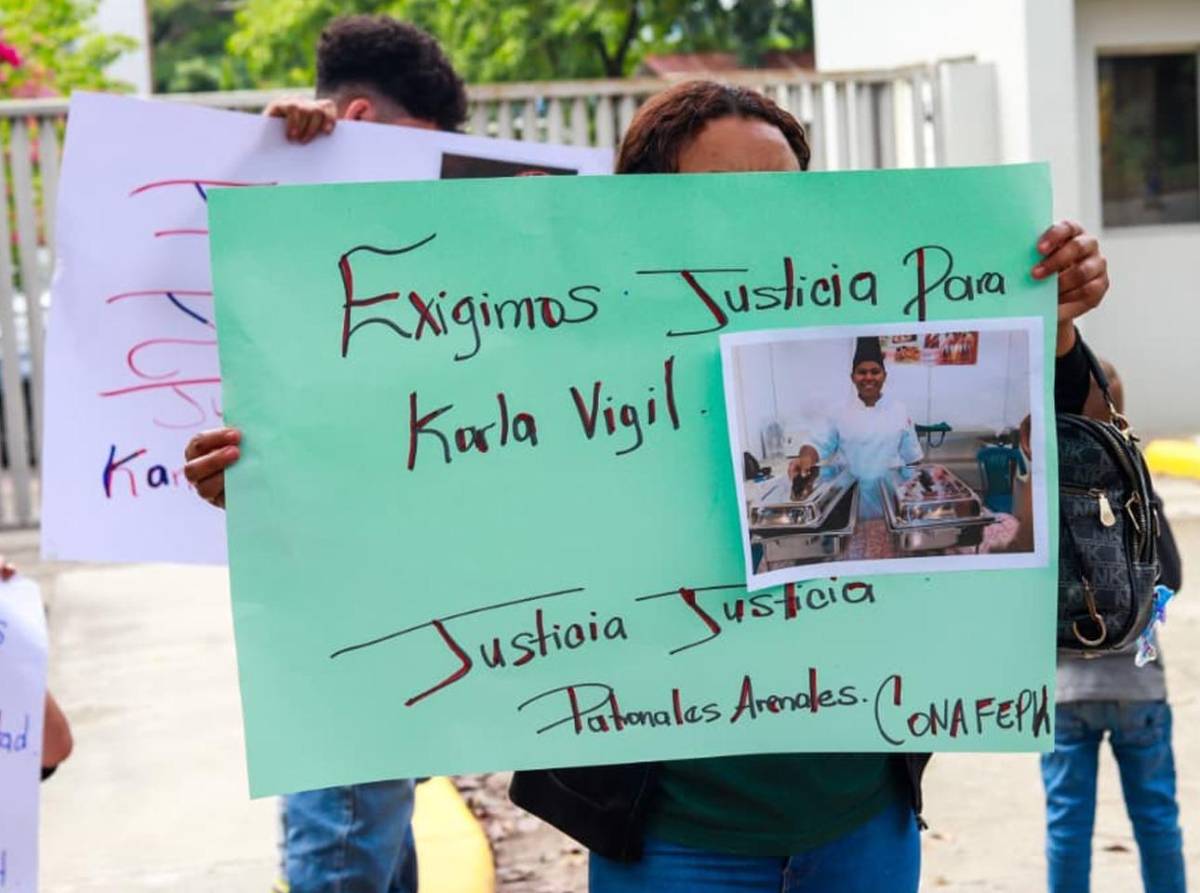 Exigimos Justicia Para
Karla Vigil.
Justicia Justicia
Patronales Arenales. CONAFEPH
Kar
ad